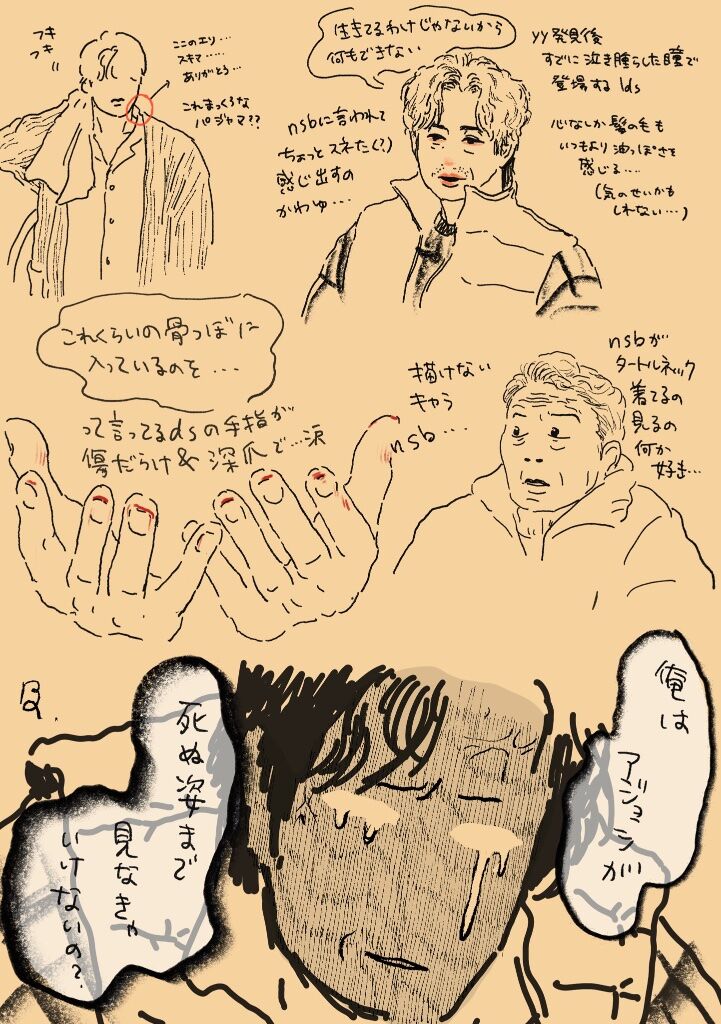 フキ
フキ
ここのエリ・・・・
スキマ・・・・
ありがとう・・・
これまっくろな
パジャマ??
生きてるわけじゃないから
何もできない
nsbに言われて
ちょっとスネた(?)
感じ出すの
かわゆ・・・
yy発見後
すでに泣き腫らした瞳で
登場するlds
心なしか髪の毛も
いつもより油っぽさを
感じる・・・・
(気のせいかも
しれない・・・)
これくらいの骨つぼに
入っているのを・・・
って言ってるdsの手指が
傷だらけ&深爪で…涙
描けない
キャラ
nsb・・・・
nsbが
タートルネック
着てるの
見るの
何か
好き…
俺は
アジョシが
死ぬ姿まで
見なきゃ
いけないの?